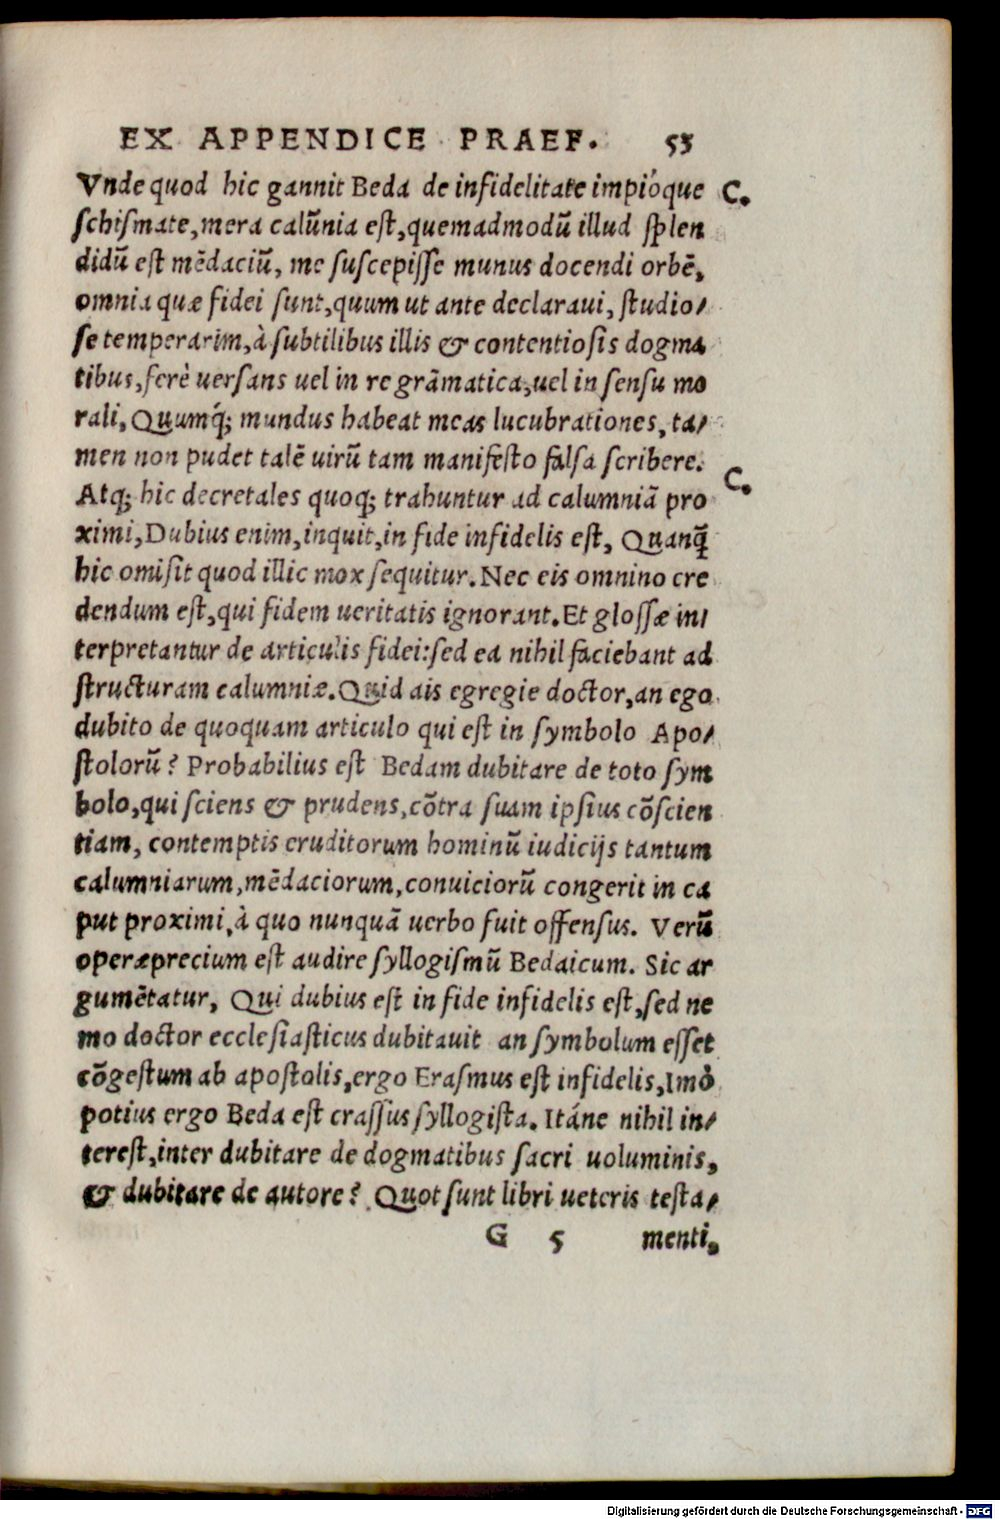 EX APPENDICE PRAEF. 53
Vnde quod hic gannit Beda de infidelitate impióque C.
schismate, mera calũnia est, quemadmodũ illud splen
didũ est mẽdaciũ, me suscepisse munus docendi orbẽ,
omnia quæ fidei sunt, quum ut ante declaraui, studio/
se temperarim, à subtilibus illis & contentiosis dogma
tibus, ferè uersans uel in re grãmatica, uel in sensu mo
rali, Quumq́; mundus habeat meas lucubrationes, ta/
men non pudet talẽ uirũ tam manifesto falsa scribere.
Atq; hic decretales quoq; trahuntur ad calumniã pro C.
ximi, Dubius enim, inquit, in fide infidelis est, Quanq̃
hic omisit quod illic mox sequitur. Nec eis omnino cre
dendum est, qui fidem ueritatis ignorant. Et glossæ in/
terpretantur de articulis fidei: sed ea nihil faciebant ad
structuram calumniæ. Quid ais egregie doctor, an ego
dubito de quoquam articulo qui est in symbolo Apo/
stolorũ? Probabilius est Bedam dubitare de toto sym
bolo, qui sciens & prudens, cõtra suam ipsius cõscien
tiam, contemptis eruditorum hominũ iudicijs tantum
calumniarum, mẽdaciorum, conuiciorũ congerit in ca
put proximi, à quo nunquã uerbo fuit offensus. Verũ
operæprecium est audire syllogismũ Bedaicum. Sic ar
gumẽtatur, Qui dubius est in fide infidelis est, sed ne
mo doctor ecclesiasticus dubitauit an symbolum esset
cõgestum ab apostolis, ergo Erasmus est infidelis, Imò
potius ergo Beda est crassus syllogista. Itáne nihil in/
terest, inter dubitare de dogmatibus sacri uoluminis,
& dubitare de autore? Quot sunt libri ueteris testa/
G 5 menti,
Digitalisierung gefördert durch die Deutsche Forschungsgemeinschaft - DFG